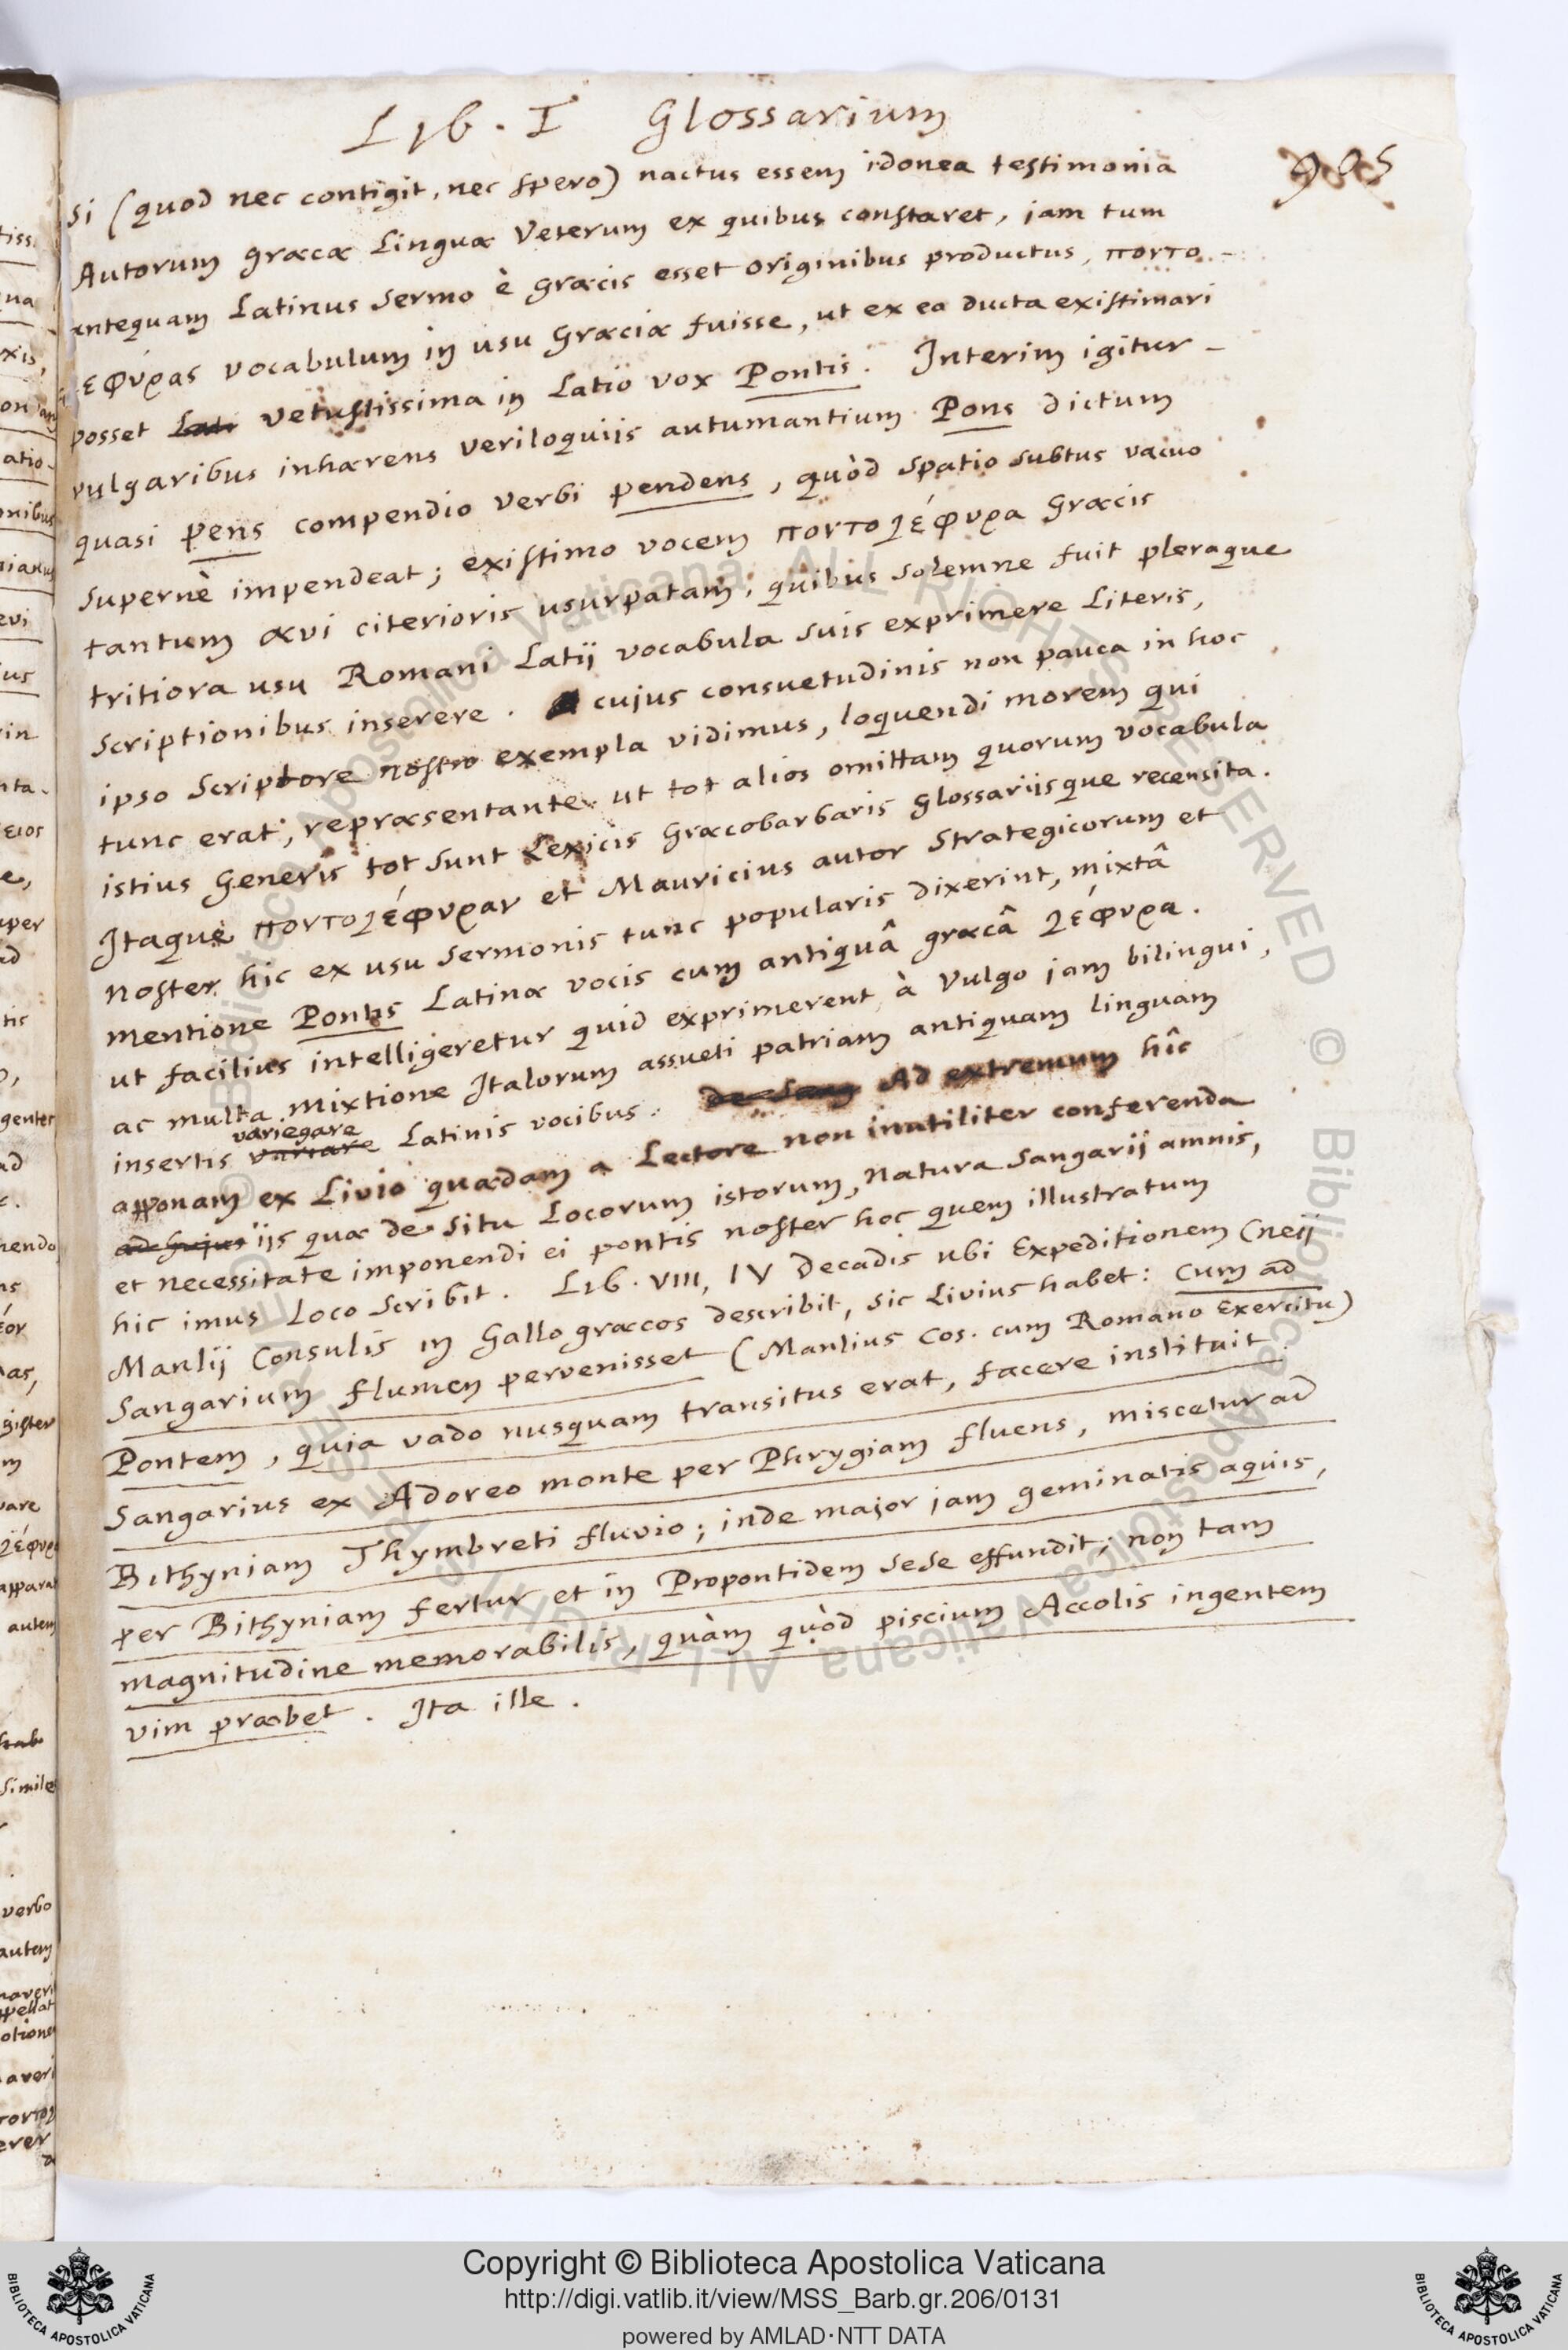 Lib. I Glossarium
905
si (quod nec contigit, nec spero) nactus essem idonea testimonia
Autorum græcæ Linguæ Veterum ex quibus constaret, jam tum
antequam Latinus sermo è græcis esset originibus productus, ποντο-
γεφύρας vocabulum in usu Græciæ fuisse, ut ex ea ducta existimari
posset vetustissima in Latio vox Pontis. Interim igitur
vulgaribus inhærens veriloquiis autumantium Pons dictum
quasi pens compendio verbi pendens, quòd spatio subtus vacuo
supernè impendeat; existimo vocem ποντογέφυρα Græcis
tantum ævi citerioris usurpatam, quibus solemne fuit pleraque
tritiora usu Romani Latij vocabula suis exprimere Literis,
scriptionibus inserere. cujus consuetudinis non pauca in hoc
ipso scriptore nostro exempla vidimus, loquendi morem qui
tunc erat, repræsentante. ut tot alios omittam quorum vocabula
istius generis tot sunt Lexicis Græcobarbaris glossariisque recensita.
Itaque ποντογέφυραν et Mauricius autor Strategicorum et
noster hic ex usu sermonis tunc popularis dixerint, mixtâ
mentione Pontis Latinæ vocis cum antiquâ græcâ γέφυρα.
ut facilius intelligeretur quid exprimerent à Vulgo jam bilingui,
ac multa mixtione Italorum assueti patriam antiquam linguam
variegare
insertis variare Latinis vocibus. de Sang Ad extremum hîc
apponam ex Livio quædam a Lectore non inutiliter conferenda
iis quæ de situ Locorum istorum, natura Sangarij amnis,
et necessitate imponendi ei pontis noster hoc quem illustratum
hic imus Loco scribit. Lib. VIII, IV Decadis ubi Expeditionem Cneij
Manlij Consulis in Gallogræcos describit, sic Livius habet: Cum ad
Sangarium flumen pervenisset (Manlius Cos. cum Romano Exercitu)
Pontem, quia vado nusquam transitus erat, facere instituit
Sangarius ex Adoreo monte per Phrygiam fluens, miscetur ad
Bithyniam Thymbreti fluvio; inde major jam geminatis aquis,
per Bithyniam fertur et in Propontidem sese effundit; non tam
magnitudine memorabilis, quàm quòd piscium Accolis ingentem
vim præbet. Ita ille.
Copyright © Biblioteca Apostolica Vaticana
http://digi.vatlib.it/view/MSS_Barb.gr.206/0131
powered by AMLAD·NTT DATA